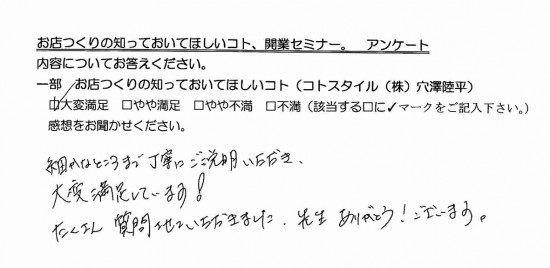 お店つくりの知っておいてほしいコト、開業セミナー。　アンケート
内容についてお答えください。
一部　お店つくりの知っておいてほしいコト（コトスタイル（株）穴澤陸平）
☑大変満足　□やや満足　□やや不満　□不満（該当する□に✓マークをご記入下さい。）
感想をお聞かせください。
細かなところまで丁寧にご説明いただき、
大変満足しています！
たくさん質問させていただきました、先生ありがとう！ございます。